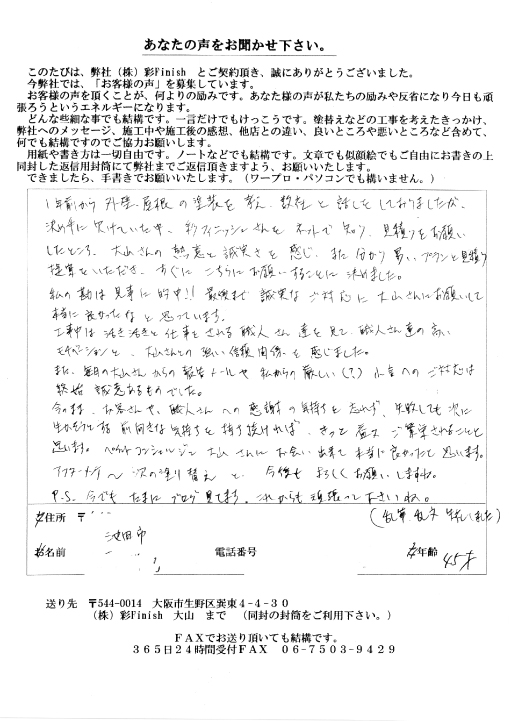 あなたの声をお聞かせ下さい。
このたびは、弊社（株）彩Finish とご契約頂き、誠にありがとうございました。
今弊社では、「お客様の声」を募集しています。
お客様の声を頂くことが、何よりの励みです。あなた様の声が私たちの励みや反省になり今日も頑
張ろうというエネルギーになります。
どんな些細な事でも結構です。一言だけでもけっこうです。塗替えなどの工事を考えたきっかけ、
弊社へのメッセージ、施工中や施工後の感想、他店との違い、良いところや悪いところなど含めて、
何でも結構ですのでご協力お願いします。
用紙や書き方は一切自由です。ノートなどでも結構です。文章でも似顔絵でもご自由にお書きの上
同封した返信用封筒にて弊社までご返信頂きますよう、お願いいたします。
できましたら、手書きでお願いいたします。（ワープロ・パソコンでも構いません。）
1年前から外壁、屋根の塗装を考え、数社と話をしておりましたが、
決め手に欠けていた中、彩フィニッシュさんをネットで知り、見積りをお願い
したところ、大山さんの熱意と誠実さを感じ、また分かり易いプランと見積り
提案をいただき、すぐにこちらにお願いすることに決めました。
私の勘は見事に的中!! 最後まで誠実なご対応に大山さんにお願いして
本当に良かったなと思っています。
工事中は活き活きと仕事をされる職人さん達を見て、職人さん達の高い
モチベーションと、大山さんとの強い信頼関係を感じました。
また、毎日の大山さんからの報告メールや私からの厳しい(?)小言へのご対応は
終始誠意あるものでした。
今のまま、お客さんや、職人さんへの感謝の気持ちを忘れず、失敗しても次に
生かそうとする前向きな気持ちを持ち続ければ、きっと益々ご繁栄されることと
思います。ペイントコンシェルジュ大山さんにお会い出来て本当に良かったと思います。
アフターメンテ〜次の塗り替えと、今後もよろしくお願いしますね。
P.S. 今でもたまにブログ見てます。これからも頑張って下さいね。
(乱筆、乱文 失礼しました)
ご住所 〒
池田市
お名前 電話番号 ご年齢 45才
送り先 〒544-0014 大阪市生野区巽東４－４－３０
（株）彩Finish 大山 まで （同封の封筒をご利用下さい。）
ＦＡＸでお送り頂いても結構です。
３６５日２４時間受付ＦＡＸ ０６－７５０３－９４２９